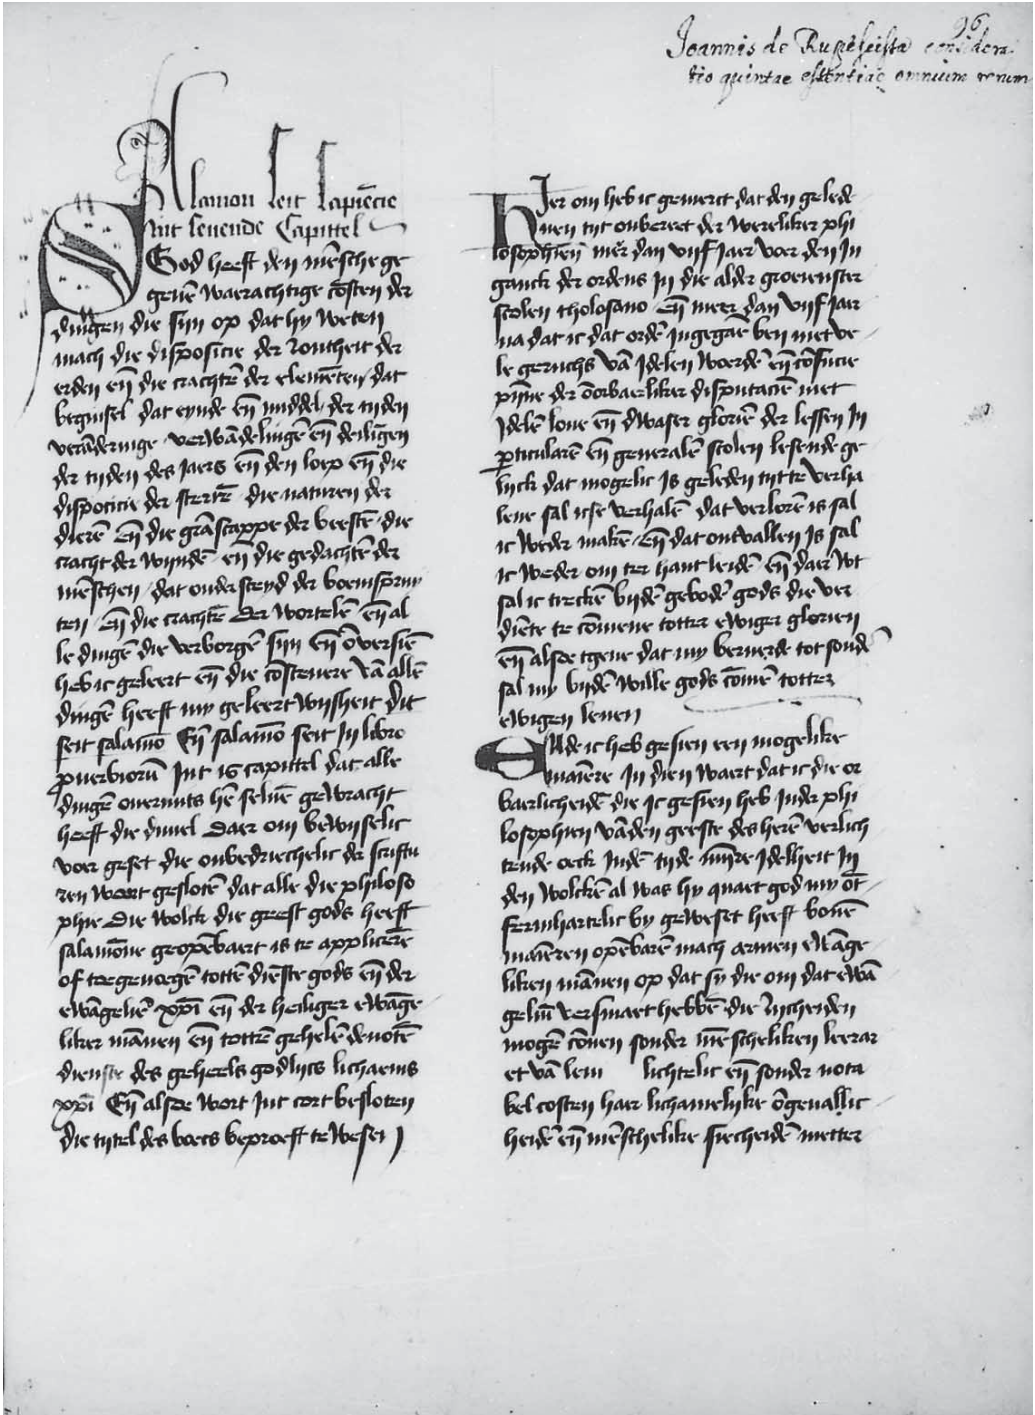 96
Joannis de Rupescista considera-
tio quintae essentiae omnium rerum
SAlamon seit sapiēcie
int sevende Capittel
God heeft den mēsche ge
gevē waerachtige cōsten der
dingen die sijn op dat hy weten
mach die disposicie der rontheit der
erden eñ die crachtē der elemēten / dat
beginsel dat eynde eñ middel / der tijden
verāderinge · verwādelingē eñ deilīgen
der tijden des jaers eñ den loep eñ die
dispocicie der sterrē · die naturen der
dierē eñ die grāscappe der beestē · die
cracht der wijndē · eñ die gedachtē der
mēschen / dat ondersceyd der boemspruy
ten · eñ die crachtē der wortelē · eñ al
le dingē die verborgē sijn eñ ōversiē
heb ic geleert eñ die cōstenere vā allē
dingē heeft my geleert wijsheit dit
seit salamō Eñ salamō seit in libro
proverbiorū int 16 capittel dat alle
dingē overmits hē selvē gewracht
heeft die duvel daer om bewijselic
voer geset die onbedriechelic der scriftu
ren wort geslotē dat alle die philoso
phie die wolck die geest gods heeft
salamōne geopēbaert is te applicerē
of toegevoegē tottē diēste gods eñ der
ewāgeliē xpī eñ der heiliger ewāge
liker mānen eñ tottē gehelē devotē
dienste des geheels godlijcs lichaems
xpī Eñ alsoe wort int cort besloten
die tijtel des boecs beproeft te wesen
HIer om heb ic gemerct dat den gelede
nen tijt onbereet der wereliker phi
losophien mēr dan vijf jaer voer den in
ganck der ordens in die alder groeienster
scolen tholosano eñ meer dan vijf jaer
na dat ic dat ordē ingegaē ben met ve
le geruchs vā idelen woerdē eñ cōfucie
pijne der ōorbaerliker disputaciē met
idelē love eñ dwaser gloriē der lessen in
perticularē eñ generalē scolen lesende ge
lijck dat mogelic is geleden tijt te verha
lene sal icse verhalē dat verlorē is sal
ic weder makē · eñ dat ontvallen is sal
ic weder om ter hant leidē eñ daer wt
sal ic treckē bydē gebodē gods die ver
diēte te cōmene totter ewiger glorien
eñ alsoe tgene dat my beruerde tot sondē
sal my bydē wille gods cōmē totter
ewigen leven
ENde ic heb gesien een mogelike
maiēre in dien waert dat ic die or
baerlicheidē die ic gesien heb inder phi
losophien vāden geeste des herē verlich
tende oeck indē tijde mijnre idelheit in
den wolckē al was hy quaet god my ōt
fermhartelic by geweset heeft bovē
maiēren opēbarē mach armen ewāge
liken mānen op dat sy die om dat ewā
geliū versmaet hebbē die rijcheiden
mogē cōmen sonder mēscheliken leerar
et vā lem lichtelic eñ sonder nota
bel costen haer lichamelijke ōgevallic
heidē eñ mēschelike siecheidē metter